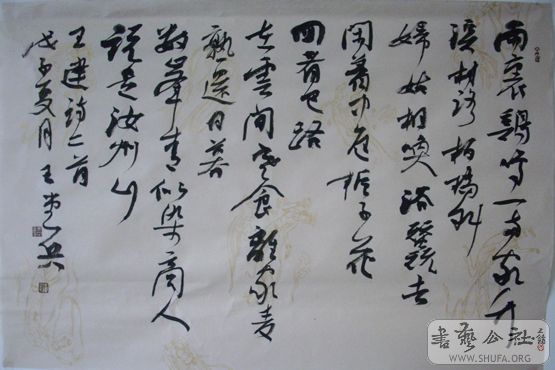 雨裏鷄鳴一两家竹
溪村路板橋斜
婦姑相喚浴蠶去
閑看中庭栀子花
回看巴路
在雲間寒食離家麦
熟還日暮
数峯青似染商人
説是汝州山
王建詩二首
戊子夏月 王
書藝公社
WWW.SHUFA.ORG